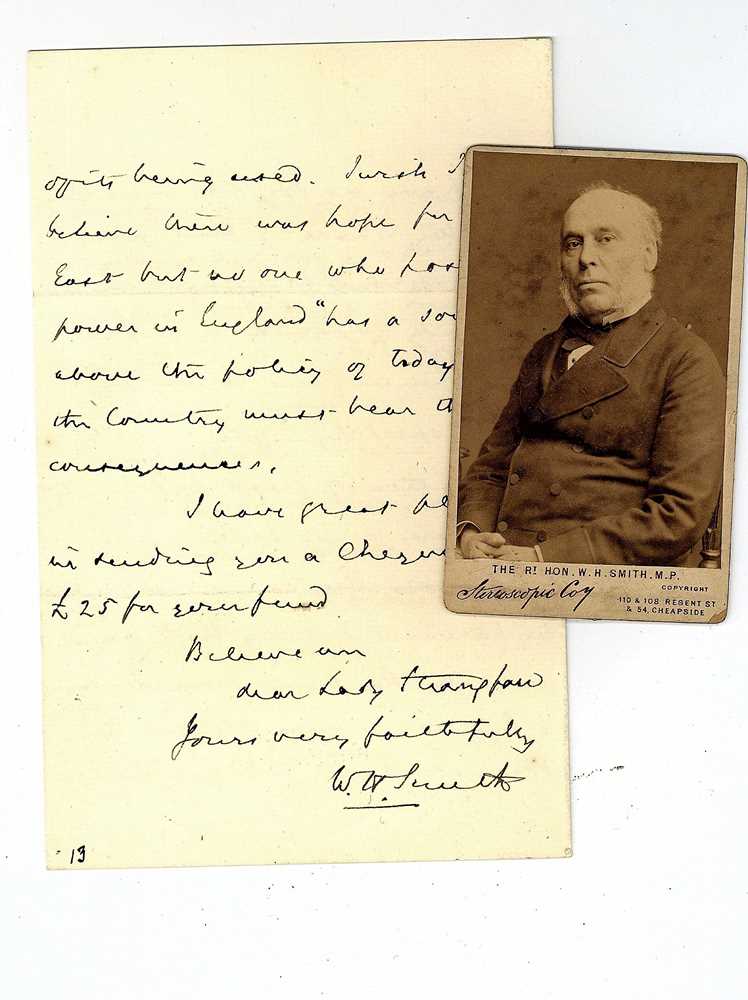 of its being used. I wish I
believe there was hope for
East but no one who poss
power in England "has a sou
above the policy of today
the Country must bear th
consequences.
I have great pl
in sending you a Cheque
£25 for your fund
Believe me
dear Lady Strangford
Yours very faithfully
W. H. Smith
13
THE RT HON. W. H. SMITH. M.P.
Stereoscopic Coy
COPYRIGHT
110 & 108 REGENT ST
& 54, CHEAPSIDE